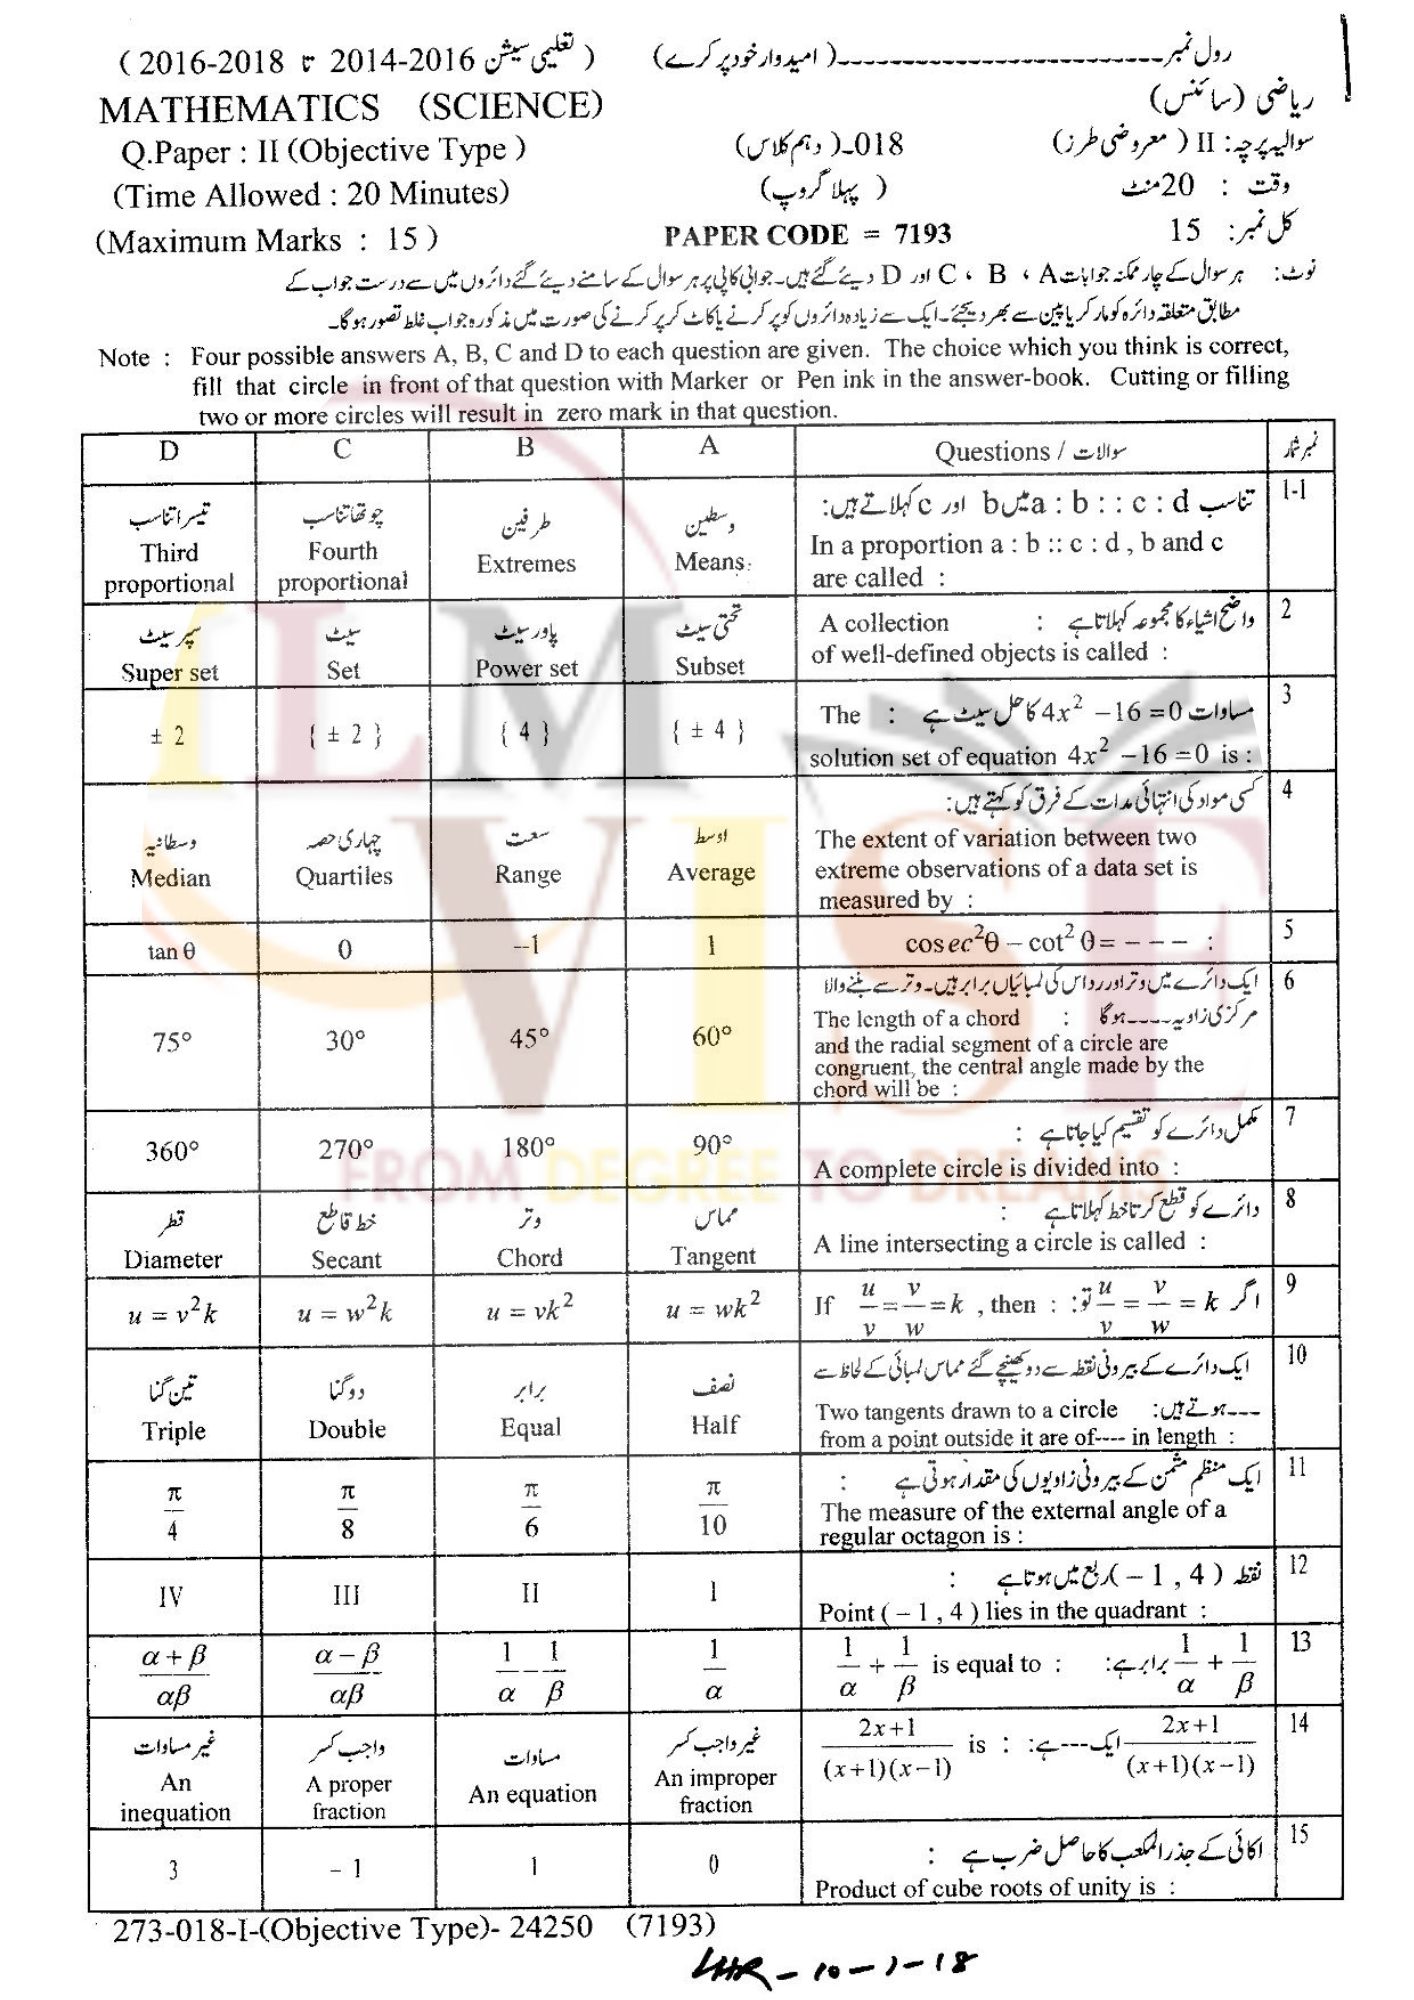 رول نمبر-------------------------(امیدوار خود پر کرے) (تعلیمی سیشن 2014-2016 تا 2016-2018)
ریاضی (سائنس) MATHEMATICS (SCIENCE)
سوالیہ پرچہ : II (معروضی طرز) 018-(دہم کلاس) Q.Paper : II (Objective Type )
وقت : 20 منٹ (پہلا گروپ) (Time Allowed : 20 Minutes)
کل نمبر: 15 PAPER CODE = 7193 (Maximum Marks : 15 )
نوٹ: ہر سوال کے چار ممکنہ جوابات A ، B ، C اور D دیئے گئے ہیں۔ جوابی کاپی پر ہر سوال کے سامنے دیئے گئے دائروں میں سے درست جواب کے
مطابق متعلقہ دائرہ کو مارکر یا پین سے بھر دیجئے۔ ایک سے زیادہ دائروں کو پر کرنے یا کاٹ کر پر کرنے کی صورت میں مذکورہ جواب غلط تصور ہوگا۔
Note : Four possible answers A, B, C and D to each question are given. The choice which you think is correct,
fill that circle in front of that question with Marker or Pen ink in the answer-book. Cutting or filling
two or more circles will result in zero mark in that question.
D C B A Questions / سوالات نمبر شمار
1-1 تناسب a : b : : c : d میں b اور c کہلاتے ہیں:
In a proportion a : b :: c : d , b and c
are called :
وسطین Means
طرفین Extremes
چوتھا تناسب Fourth proportional
تیسرا تناسب Third proportional
2 واضح اشیاء کا مجموعہ کہلاتا ہے : A collection
of well-defined objects is called :
تحتی سیٹ Subset
پاور سیٹ Power set
سیٹ Set
سپر سیٹ Super set
3 مساوات 4x² −16 =0 کا حل سیٹ ہے : The
solution set of equation 4x² −16 =0 is :
{ ± 4 }
{ 4 }
{ ± 2 }
± 2
4 کسی مواد کی انتہائی مدات کے فرق کو کہتے ہیں:
The extent of variation between two
extreme observations of a data set is
measured by :
اوسط Average
سعت Range
چہاری حصہ Quartiles
وسطانیہ Median
5 cosec²θ − cot² θ = − − − :
1
−1
0
tan θ
6 ایک دائرے میں وتر اور رداس کی لمبائیاں برابر ہیں۔ وتر سے بننے والا
مرکزی زاویہ ---- ہوگا : The length of a chord
and the radial segment of a circle are
congruent, the central angle made by the
chord will be :
60°
45°
30°
75°
7 مکمل دائرے کو تقسیم کیا جاتا ہے :
A complete circle is divided into :
90°
180°
270°
360°
8 دائرے کو قطع کرتا خط کہلاتا ہے :
A line intersecting a circle is called :
مماس Tangent
وتر Chord
خط قاطع Secant
قطر Diameter
9 اگر u/v = v/w = k تو: If u/v = v/w = k , then :
u = wk²
u = vk²
u = w²k
u = v²k
10 ایک دائرے کے بیرونی نقطہ سے دو کھینچے گئے مماس لمبائی کے لحاظ سے
---ہوتے ہیں: Two tangents drawn to a circle
from a point outside it are of---- in length :
نصف Half
برابر Equal
دوگنا Double
تین گنا Triple
11 ایک منظم مثمن کے بیرونی زاویوں کی مقدار ہوتی ہے :
The measure of the external angle of a
regular octagon is :
π/10
π/6
π/8
π/4
12 نقطہ ( − 1 , 4 ) ربع میں ہوتا ہے :
Point ( − 1 , 4 ) lies in the quadrant :
I
II
III
IV
13 1/α + 1/β برابر ہے: 1/α + 1/β is equal to :
1/α
1/α − 1/β
(α − β)/αβ
(α + β)/αβ
14 (2x+1)/((x+1)(x−1)) ایک---ہے: (2x+1)/((x+1)(x−1)) is :
غیر واجب کسر An improper fraction
مساوات An equation
واجب کسر A proper fraction
غیر مساوات An inequation
15 اکائی کے جذر المکعب کا حاصل ضرب ہے :
Product of cube roots of unity is :
0
1
− 1
3
273-018-I-(Objective Type)- 24250 (7193)
LHR-10-1-18
ILM
VISE
FROM DEGREE TO DREAMS